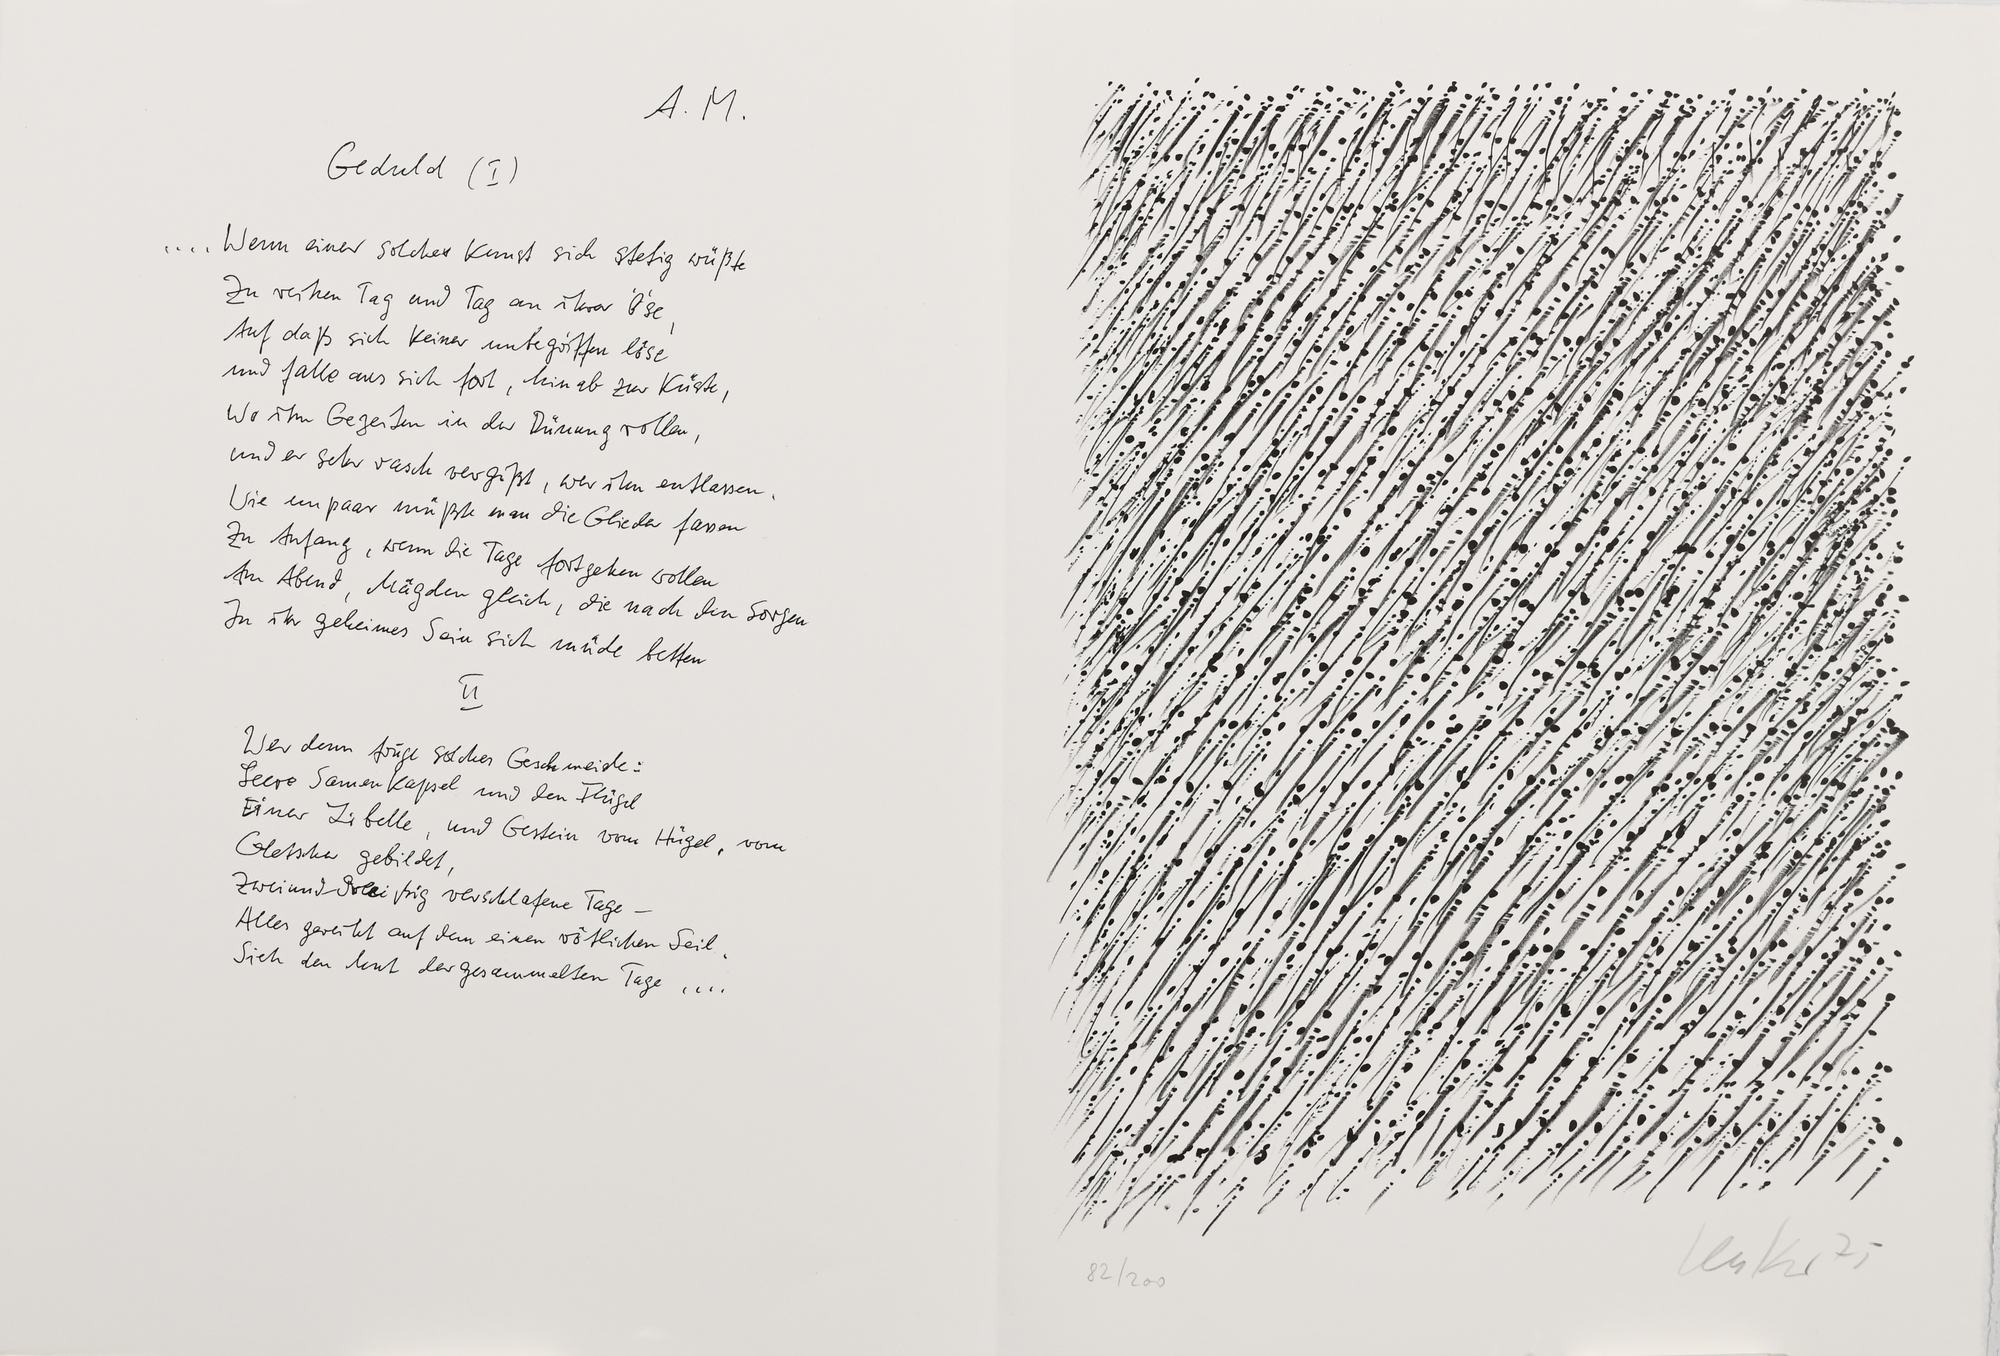 A. M.
Geduld (I)
.... Wenn einer solcher Kunst sich stetig wüßte
Zu reihen Tag und Tag an ihrer Öse,
Auf daß sich keiner unbegriffen löse
und falle aus sich fort, hinab zur Küste,
Wo ihn Gezeiten in der Dünung rollen,
und er sehr rasch vergißt, wer ihn entlassen.
Wie unpaar müßte man die Glieder fassen
Zu Anfang, wenn die Tage fortgehen wollen
Am Abend, Mägden gleich, die nach den Sorgen
In ihr geheimes Sein sich müde betten
II
Wer denn trüge solches Geschmeide:
Leere Samenkapsel und den Flügel
Einer Libelle, und Gestein vom Hügel, vom
Gletscher gebildet,
Zweiunddreißig verschlafene Tage –
Alles gereiht auf dem einen rötlichen Seil.
Sieh den der gesammelten Tage ....
82/200
75